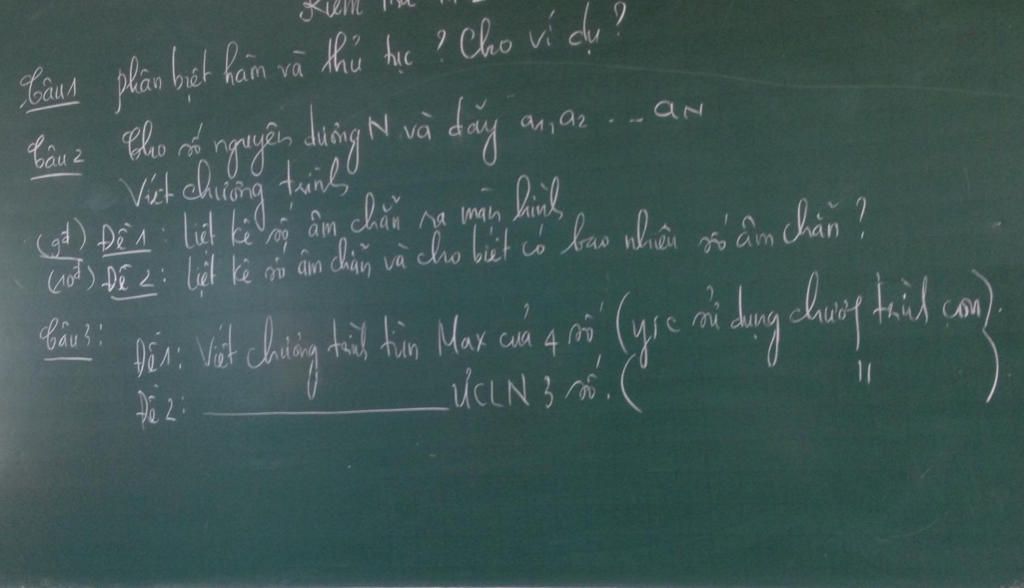 Kiểm tra
Câu 1 phân biệt hàm và thủ tục? Cho ví dụ?
Câu 2 Cho số nguyên dương N và dãy a1, a2 ... aN
Viết chương trình
(9đ) Đề 1: Liệt kê số âm chẵn ra màn hình
(10đ) Đề 2: Liệt kê số âm chẵn và cho biết có bao nhiêu số âm chẵn?
Câu 3: Đề 1: Viết chương trình tìm Max của 4 số (y/c sử dụng chương trình con).
Đề 2: ________ ƯCLN 3 số. ( " )